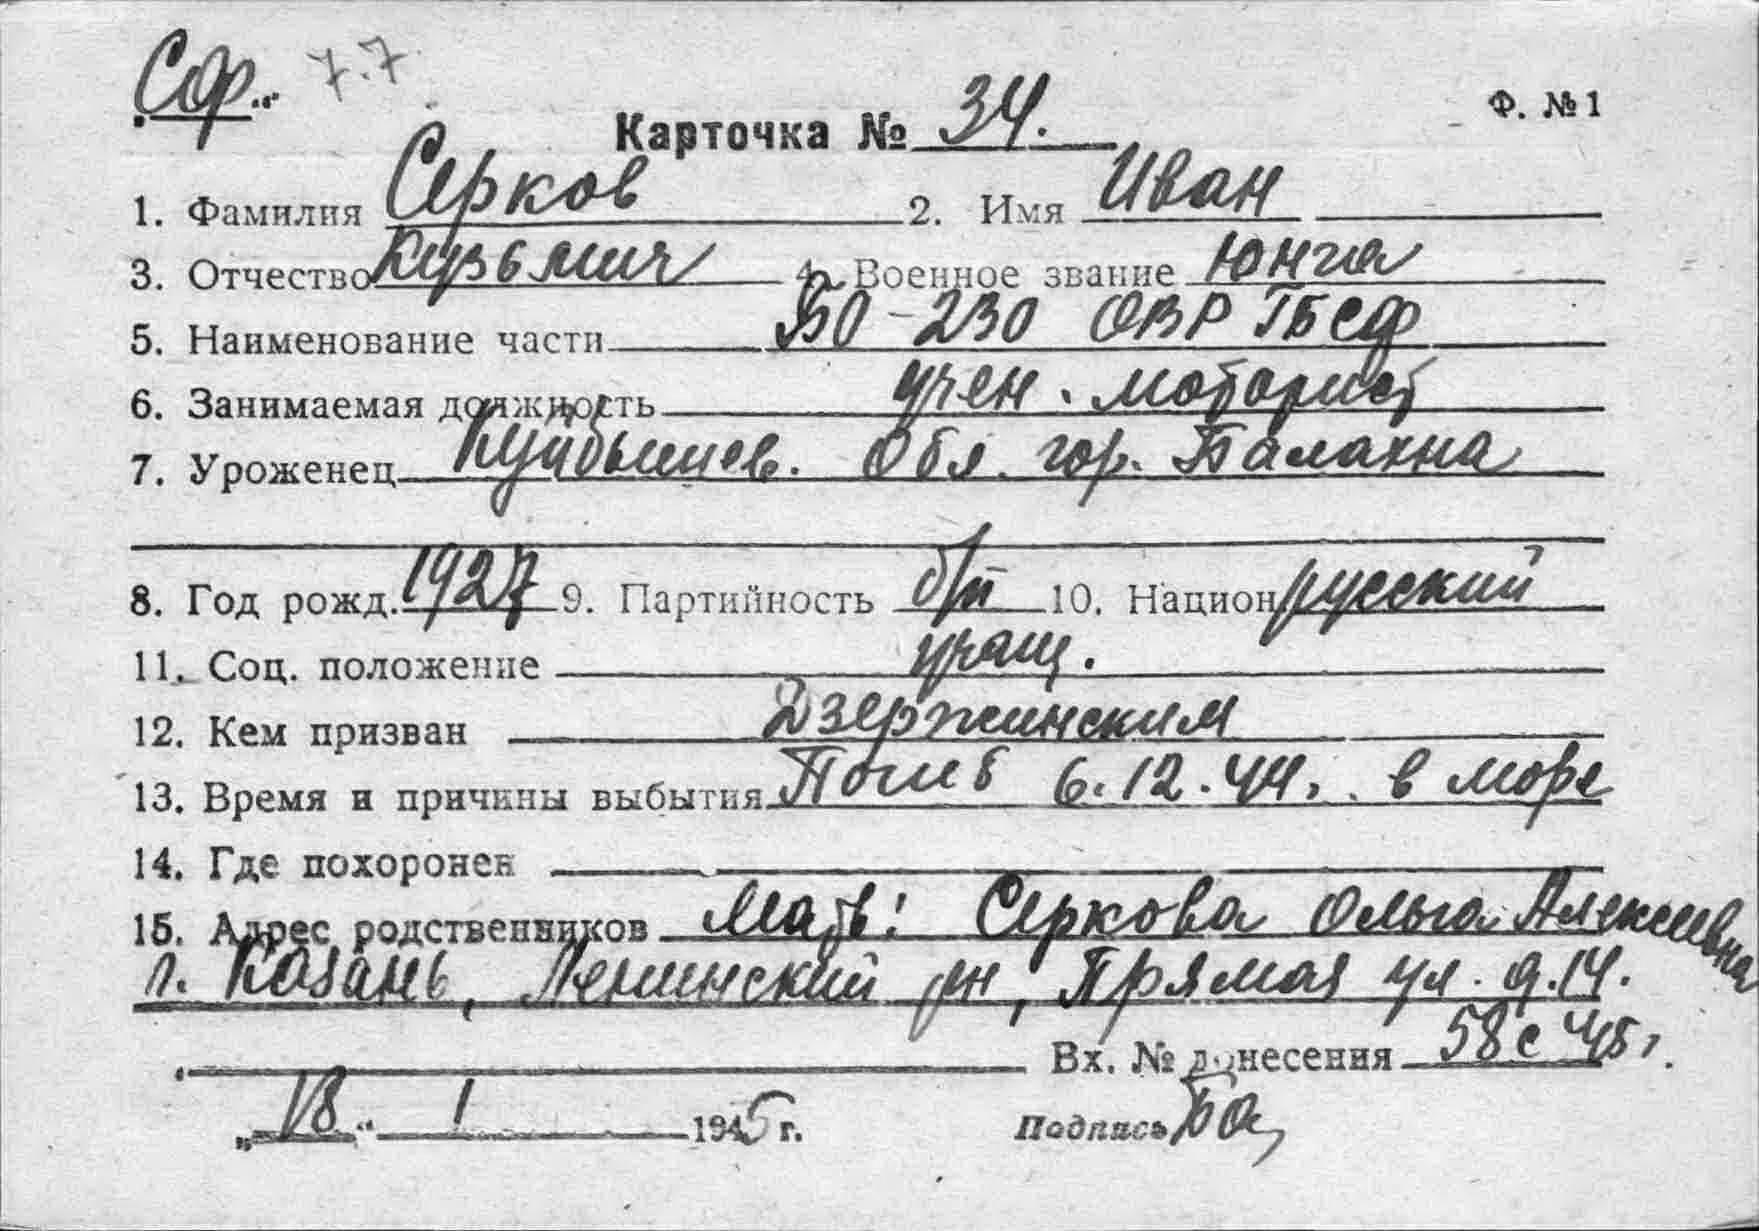 Сф. 7.7
Ф. №1
Карточка № 34.
1. Фамилия Серков 2. Имя Иван
3. Отчество Кузьмич 4. Военное звание Юнга
5. Наименование части БО-230 ОВР ГБСФ
6. Занимаемая должность учен. моторист
7. Уроженец Куйбышев. Обл. гор. Балахна
8. Год рожд. 1927 9. Партийность б/п 10. Национ русский
11. Соц. положение учащ.
12. Кем призван Дзержинским
13. Время и причины выбытия Погиб 6.12.44. в море
14. Где похоронен
15. Адрес родственников Мать: Серкова Ольга Алексеевна
г. Казань, Ленинский рн, Прямая ул. д.14.
Вх. № донесения 58с 45г.
„18“ 1 1945 г. Подпись